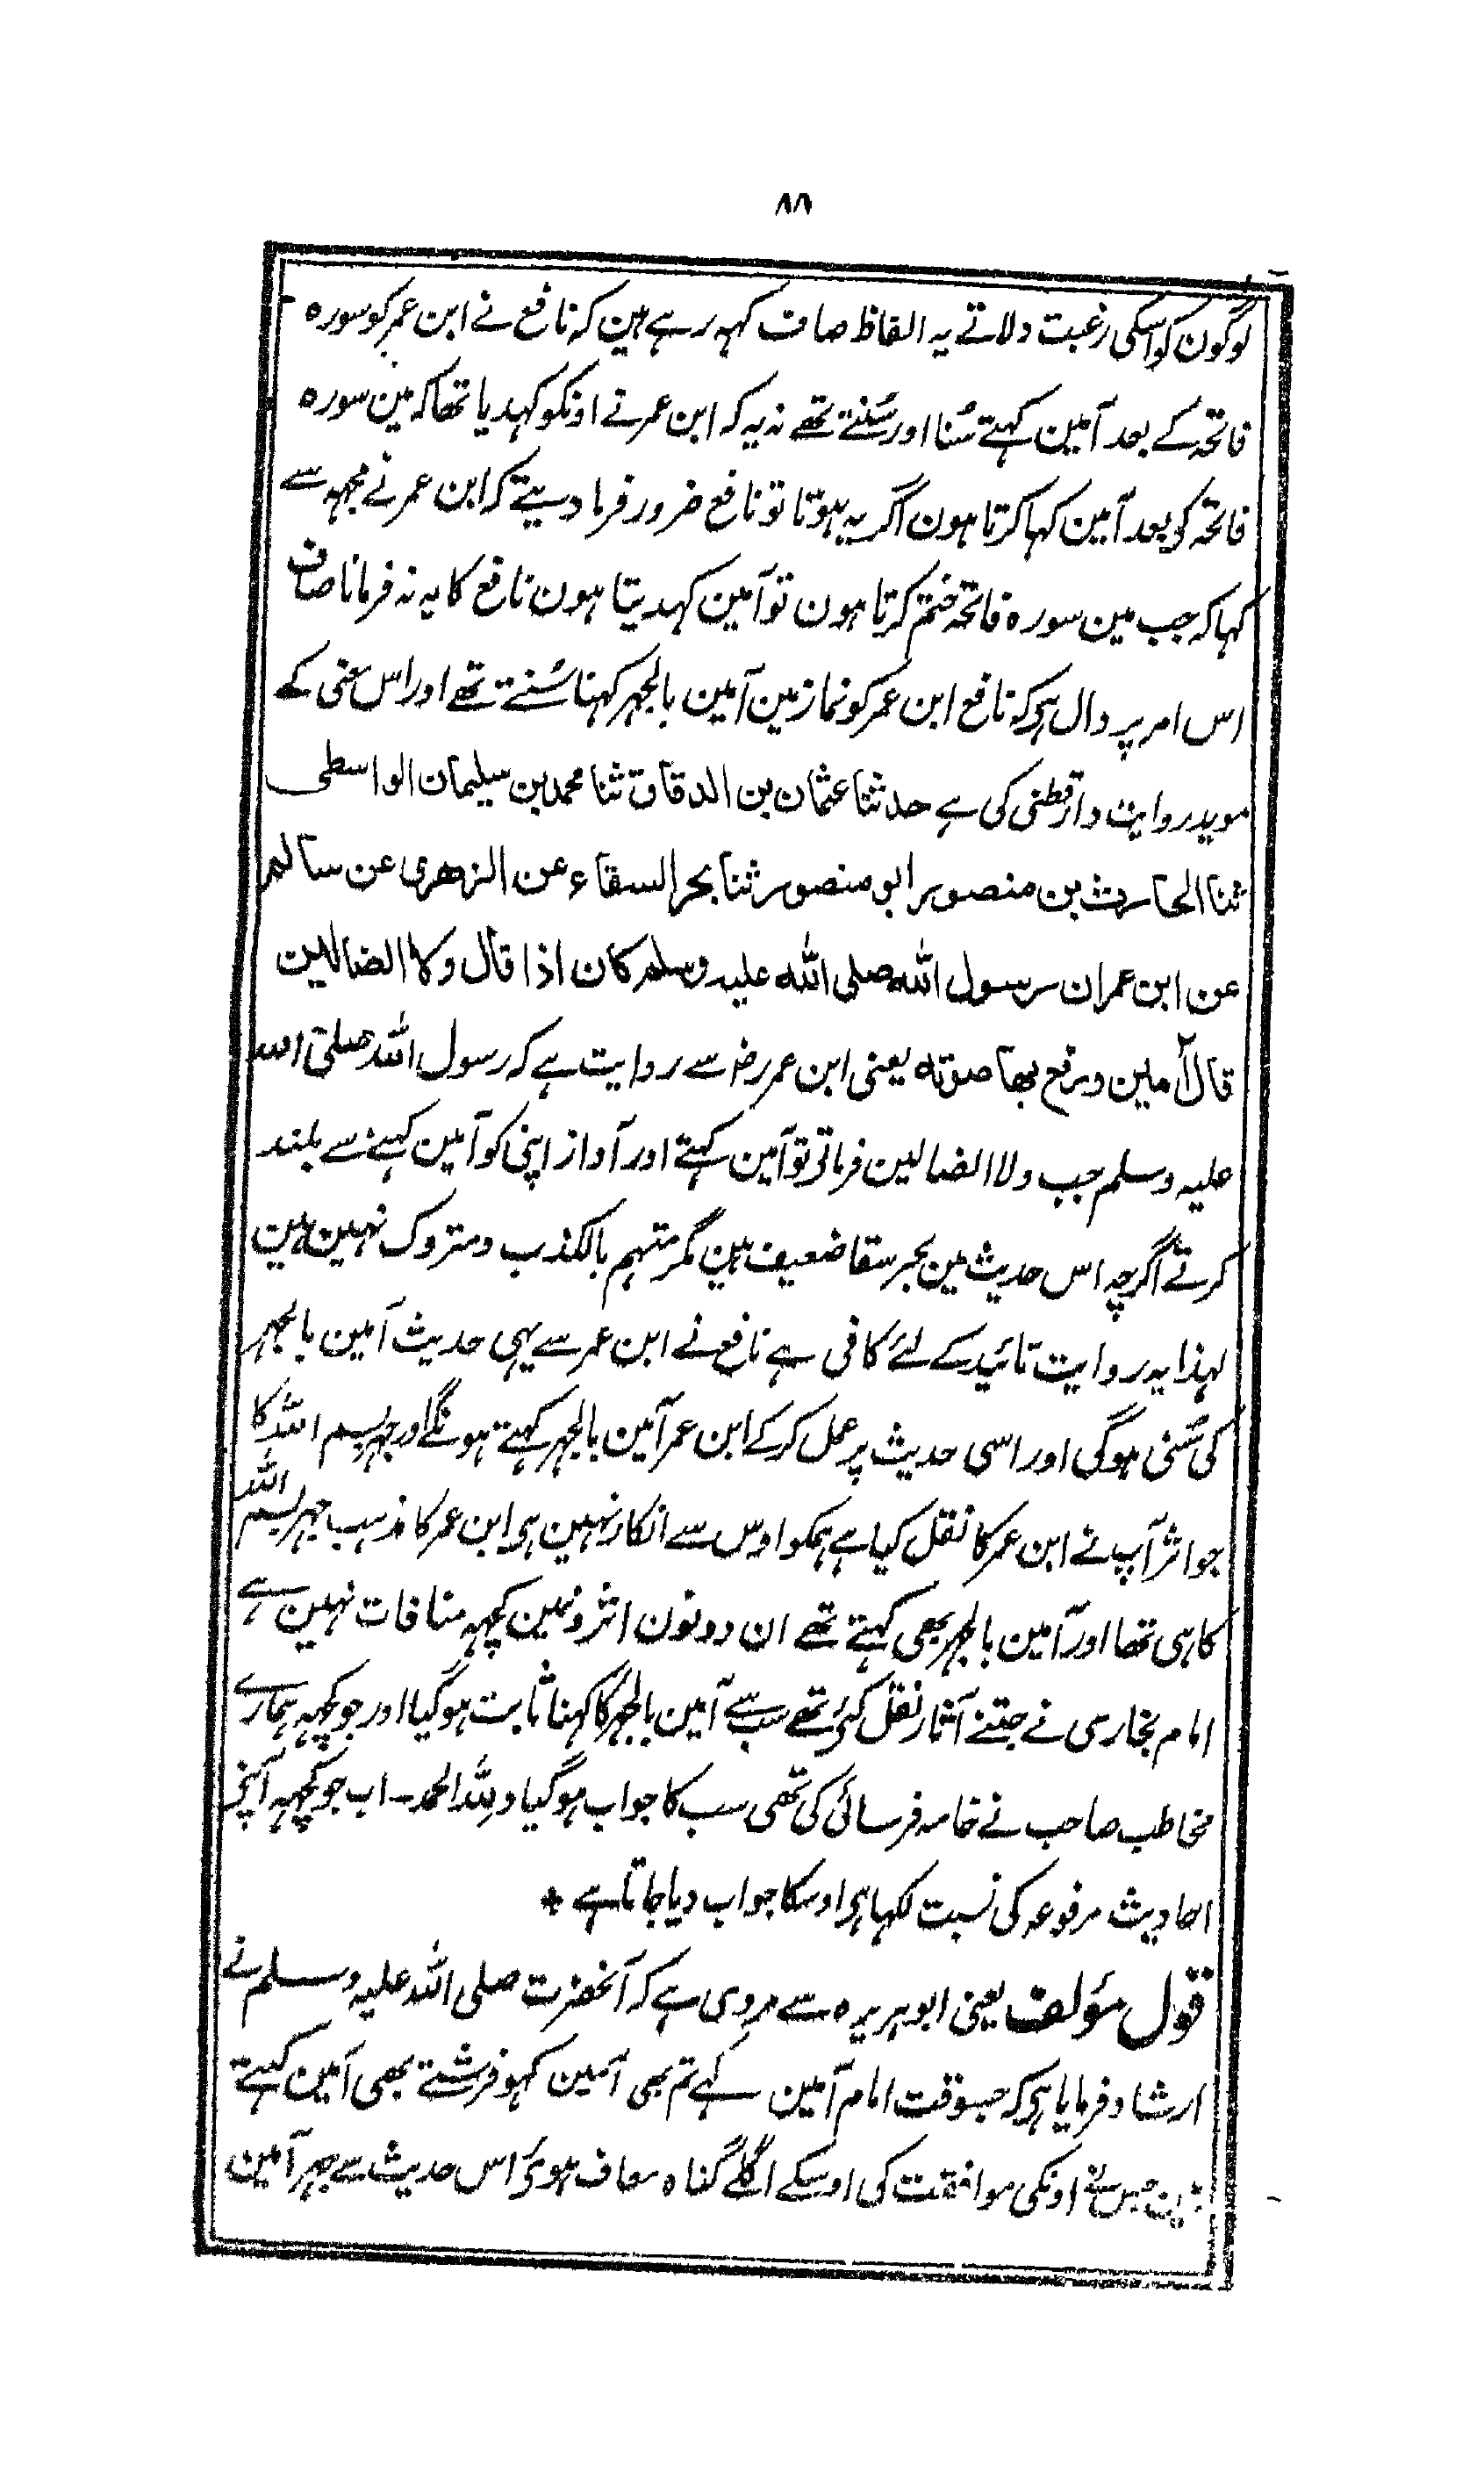 ۸۸
لوگون کو اسکی رغبت دلاتے یہ الفاظ صاف کہہ رہے ہین کہ نافع نے ابن عمر کو سورہ
فاتحہ کے بعد آمین کہتے سُنا اور سُنتے تھے نہ یہ کہ ابن عمر نے اونکو کہدیا تھا کہ مین سورہ
فاتحہ کو بعد آمین کہا کرتا ہون اگر یہ ہوتا تو نافع ضرور فرما دیتے کہ ابن عمر نے مجھہ سے
کہا کہ جب مین سورہ فاتحہ ختم کرتا ہون تو آمین کہدیتا ہون نافع کا یہ نہ فرمانا صاف
اس امر پر دال ہی کہ نافع ابن عمر کو نماز مین آمین بالجہر کہنا سُنتے تھے اور اس معنی کے
موید روایت دارقطنی کی ہے حدثنا عثمان بن الدقاق ثنا محمد بن سلیمان الواسطی
ثنا الحارث بن منصور ابو منصور ثنا بحر السقاء عن الزھری عن سالم
عن ابن عمر ان رسول اللہ صلی اللہ علیہ وسلم کان اذا قال ولا الضالین
قال آمین ورفع بھا صوتہ یعنی ابن عمر رضـ سے روایت ہے کہ رسول اللہ صلی اللہ
علیہ وسلم جب ولا الضالین فرماتی تو آمین کہتے اور آواز اپنی کو آمین کہنے سے بلند
کرتے اگرچہ اس حدیث مین بحر سقا ضعیف ہین مگر متہم بالکذب و متروک نہین ہین
لہذا یہ روایت تائید کے لئے کافی ہے نافع نے ابن عمر سے یہی حدیث آمین بالجہر
کی سُنی ہوگی اور اسی حدیث پر عمل کر کے ابن عمر آمین بالجہر کہتے ہونگے اور جہر بسم اللہ کا
جو اثر آپ نے ابن عمر کا نقل کیا ہے ہمکو اوس سے انکار نہین ہی ابن عمر کا مذہب جہر بسم اللہ
کا ہی تھا اور آمین بالجہر بھی کہتے تھے ان دونون اثرونمین کچہہ منافات نہین ہے
امام بخاری نے جتنے آثار نقل کئے تھے سب سے آمین بالجہر کا کہنا ثابت ہوگیا اور جو کچہہ ہمارے
مخاطب صاحب نے خامہ فرسائی کی تھی سب کا جواب ہوگیا و للہ الحمد۔ اب جو کچہہ آپنے
احادیث مرفوعہ کی نسبت لکہا ہی اوسکا جواب دیا جاتا ہے *
قول مؤلف یعنی ابو ہریرہ سے مروی ہے کہ آنحضرت صلی اللہ علیہ وسلم نے
ارشاد فرمایا ہی کہ جسوقت امام آمین کہے تم بھی آمین کہو فرشتے بھی آمین کہتے
ہین جس نے اونکی موافقت کی اوسکے اگلے گناہ معاف ہوئے اس حدیث سے جہر آمین